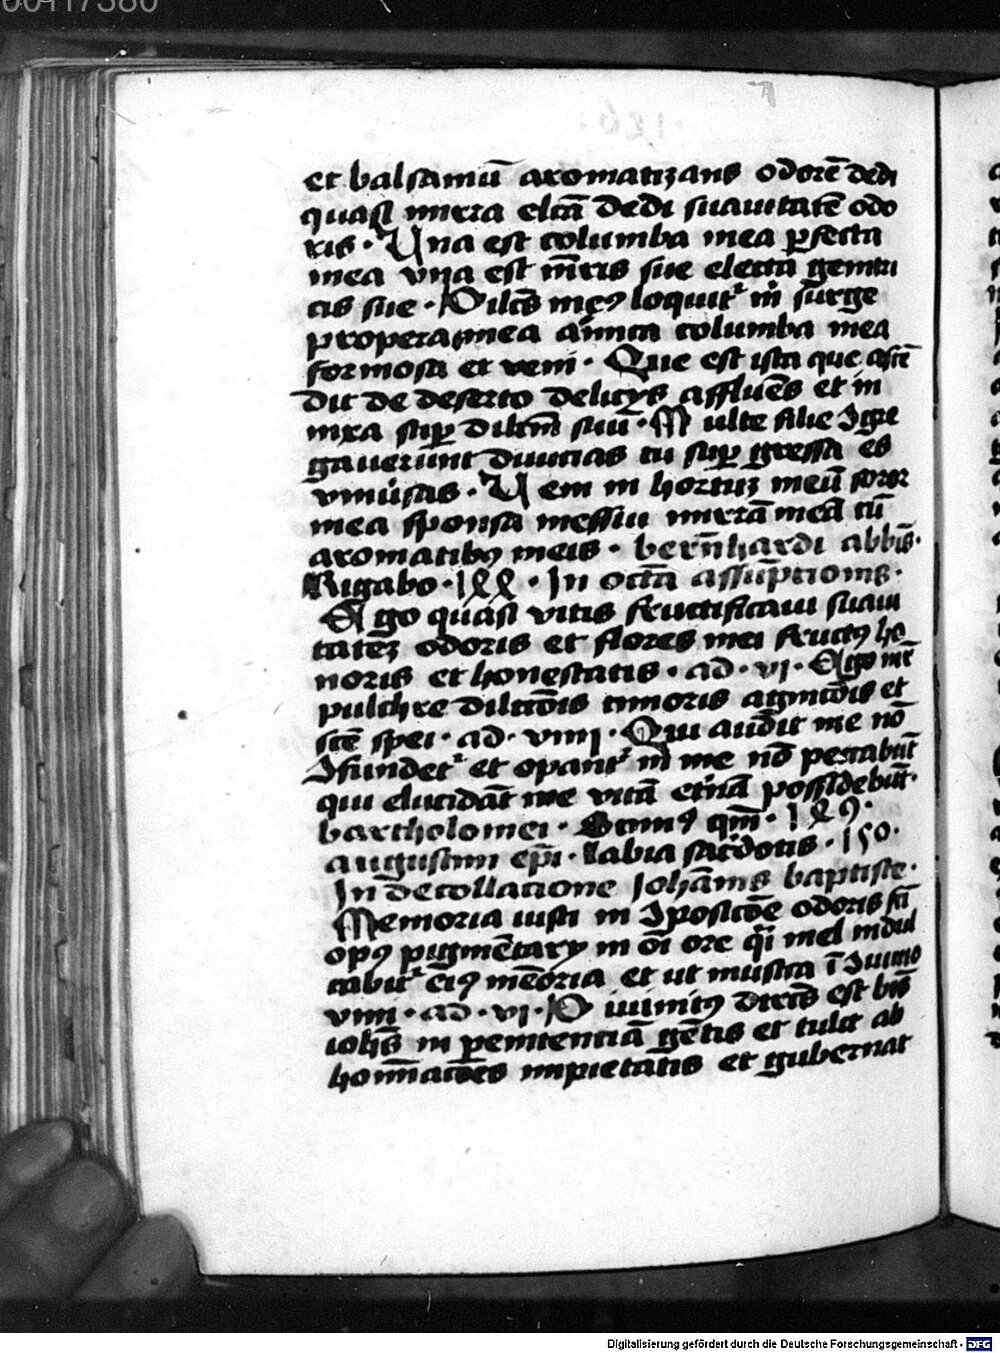 00117380
et balsamū aromatizans odorē dedi
quasi mirra elcā dedi suauitatē odo
ris · Una est columba mea ꝑfecta
mea vna est mr̄is sue electa genitri
cis sue · Dilcs̄ meꝯ loquit᷑ m̄ surge
propera amica columba mea
formosa et veni · Que est ista que ascē
dit de deserto delicijs affluēs et in
nixa suꝑ dilcm̄ suū · Multe filie ɔgre
gauerunt diuicias tu suꝑ gressa es
vniuᷣsas · Ueni in hortuꝫ meū soror
mea sponsa messui mirrā meā cū
aromatibꝯ meis · bern̄hardi abbīs ·
Rigabo · 188 · In octā assūptionis ·
Ego quasi vitis fructificaui suaui
tateꝫ odoris et flores mei fructꝯ ho
noris et honestatis · ad · vi · Ego mr̄
pulchre dilcōis timoris agnicōis et
scē spei · ad · viiij · Qui audit me nō
ɔfundet᷑ et opant᷑ in me nō peccabūt
qui elucidāt me vitā etᷣnā possidebūt ·
bartholomei · qm̄ · 189 ·
augustini ep̄i · Labia sacᷣdotis · 150 ·
In decollacione Johānis baptiste ·
Memoria iusti in ɔposicōe odoris fc̄i
opꝯ pigmētarij in oī ore q̄i mel indul
cabit᷑ eiꝯ mēoria et ut musica ī ɔuiuio
vini · ad · vi · Diuinitꝯ dircs̄ est bt̄s
ioh̄s in penitentiā gētis et tulit ab
hoīnacōes impietatis et gubernat
Digitalisierung gefördert durch die Deutsche Forschungsgemeinschaft - DFG